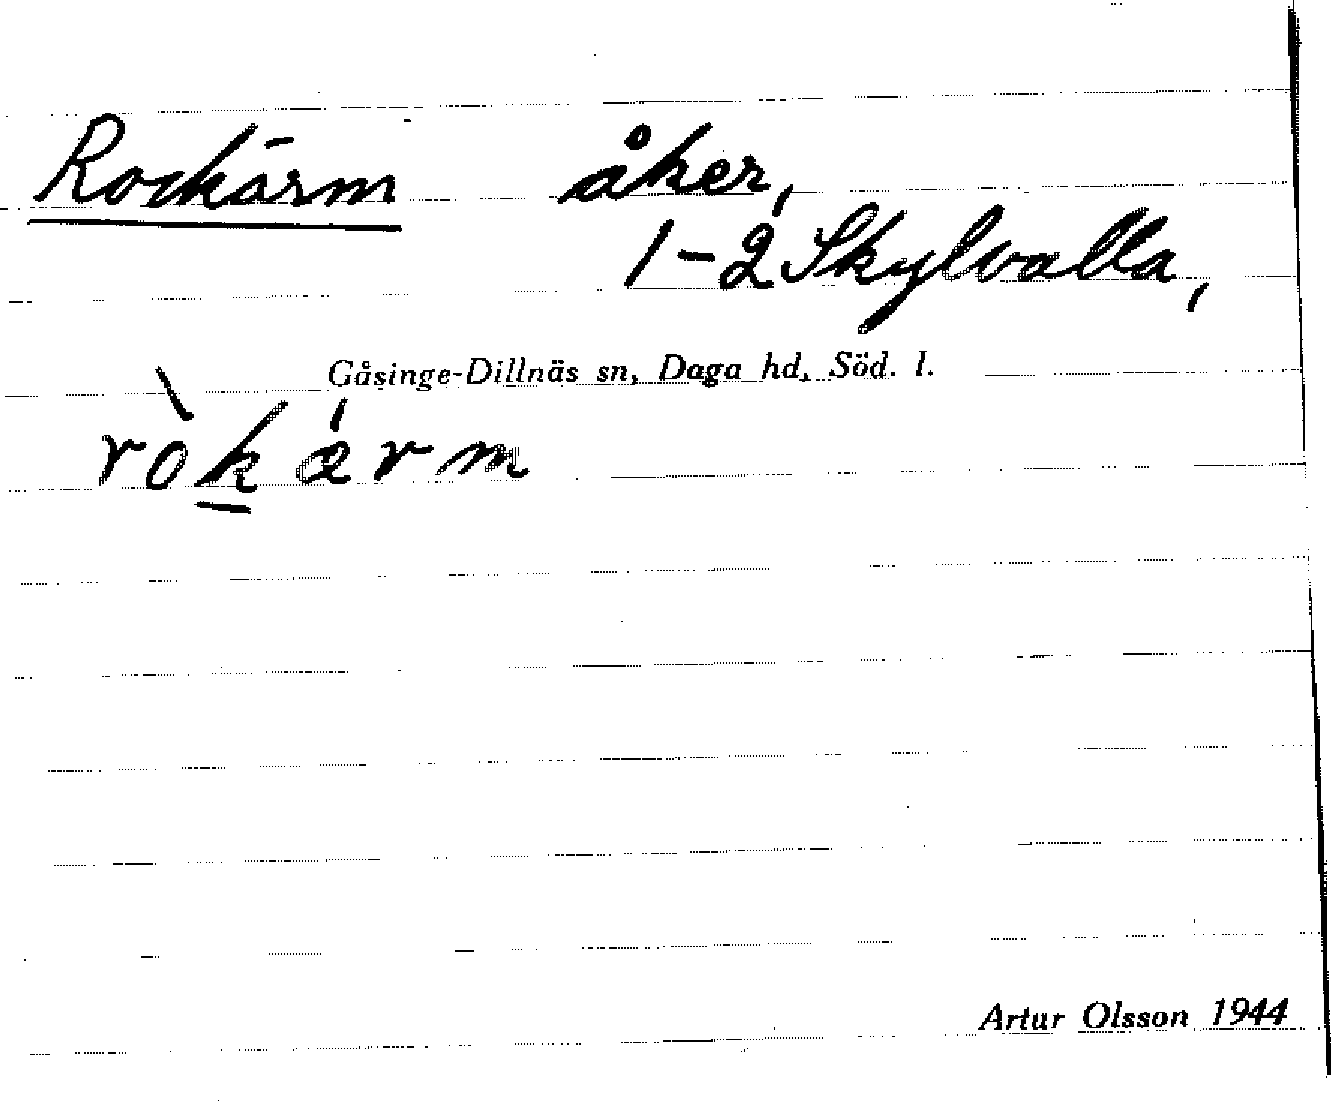 Rockärm åker,
1-2 Skylvalla,
Gåsinge-Dillnäs sn, Daga hd, Söd. l.
ròkárm
Artur Olsson 1944